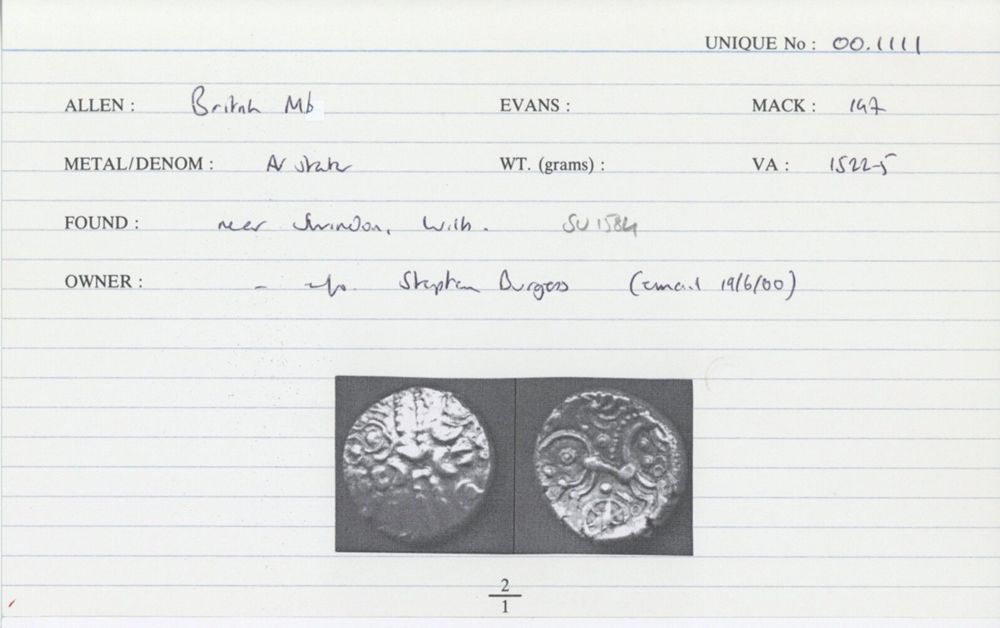 UNIQUE No : 00.1111
ALLEN : British Mb EVANS : MACK : 147
METAL/DENOM : AV stater WT. (grams) : VA : 1522-5
FOUND : near Swindon, Wilts. SU 1584
OWNER : - Stephen Burgess (email 19/6/00)
2
1